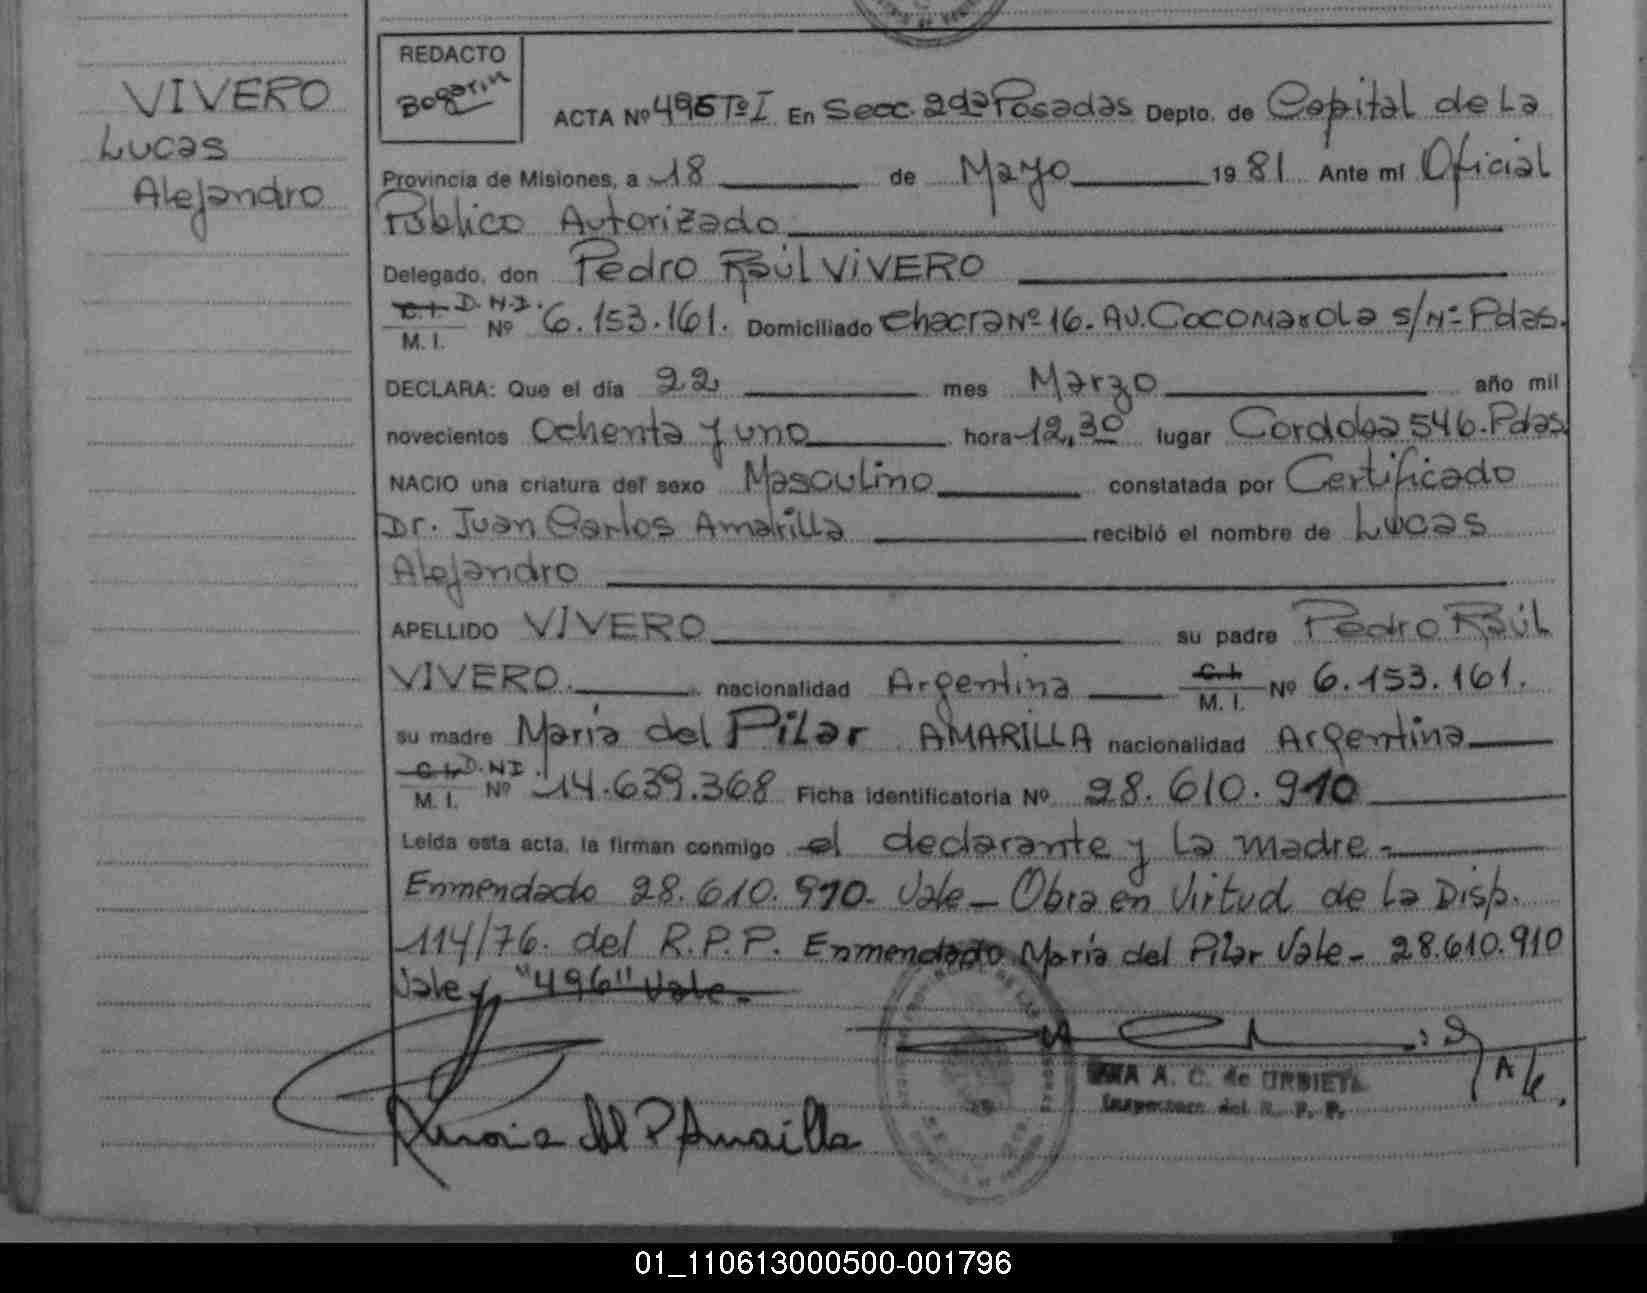 VIVERO
Lucas
Alejandro
REDACTO
Bogarin
ACTA Nº 496 Tº I En Secc. 2da Posadas Depto. de Capital de La
Provincia de Misiones, a 18 de Mayo 1981 Ante mí Oficial
Público Autorizado
Delegado, don Pedro Raúl VIVERO
C.I. D.N.I.
M. I. Nº 6.153.161. Domiciliado Chacra Nº 16. AV. Cocomarola s/Nº Pdas.
DECLARA: Que el día 22 mes Marzo año mil
novecientos Ochenta y uno hora 12,30 lugar Cordoba 546. Pdas
NACIO una criatura del sexo Masculino constatada por Certificado
Dr. Juan Carlos Amarilla recibió el nombre de Lucas
Alejandro
APELLIDO VIVERO su padre Pedro Raúl
VIVERO. nacionalidad Argentina C.I. M. I. Nº 6.153.161.
su madre María del Pilar AMARILLA nacionalidad Argentina
C.I. D.NI.
M. I. Nº 14.639.368 Ficha Identificatoria Nº 28.610.910
Leída esta acta, la firman conmigo el declarante y La madre.-
Enmendado 28.610.910. Vale - Obra en Virtud de La Disp.
114/76. del R.P.P. Enmendado María del Pilar Vale - 28.610.910
Vale y "496" Vale.-
A. C. de URBIETA
Inspectora del R. P. P.
Maria del P Amarilla
01_110613000500-001796